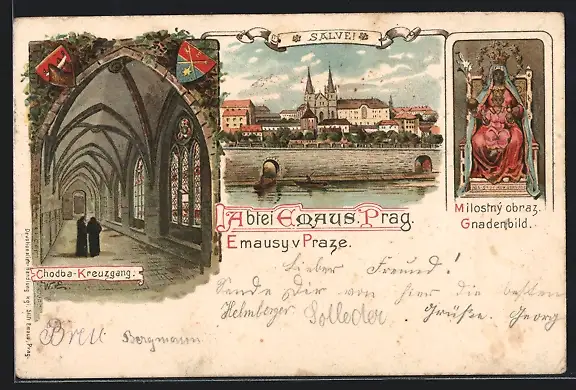 SALVE!
Abtei Emaus. Prag.
Emausy v Praze.
Milostný obraz.
Gnadenbild.
Chodba-Kreuzgang.
Lieber Freund!
Sende Dir von hier die besten
Grüße. Georg
Helmberger
Solleder
Bergmann